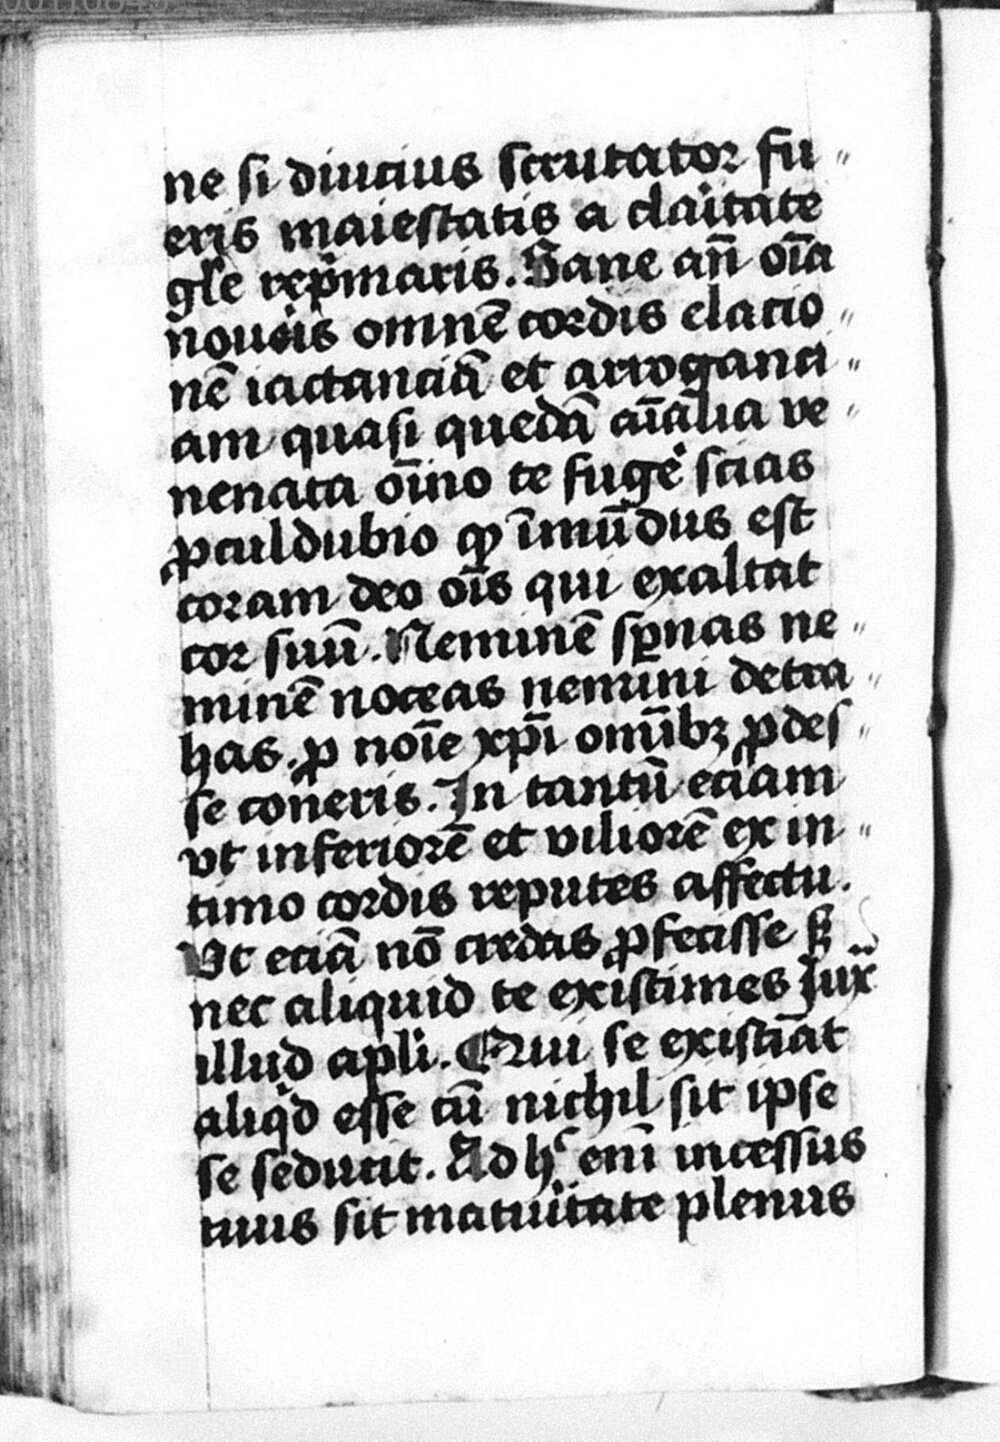 ne si diucius scrutator fu〃
eris maiestatis a claͥtate
gle rep̲̍maris. Sane an̄ oīa
noueis omnē cordis elacio〃
nē iactanciā et arroganci〃
am quasi quedā aīalia ve〃
nenata oīno te fuge᷑ scias
ꝓculdubio ꝙ īmūdus est
coram deo oīs qui exaltat
cor suū. Neminē sꝑnas ne〃
minē noceas nemini detra〃
has. ꝓ noīe xp̄i omībꝫ ꝓdes〃
se coneris. In tantū eciam
vt inferiorē et viliorē ex in〃
timo cordis reputes affectu.
Vt eciā nō credas ꝓfecisse sꝫ
nec aliquid te existimes Iux̄
illud apl̄i. Qui se existīat
aliqͥd esse cū nichil sit ipse
se seducit. Ad hͨ enī incessus
tuus sit matuͥtate plenus